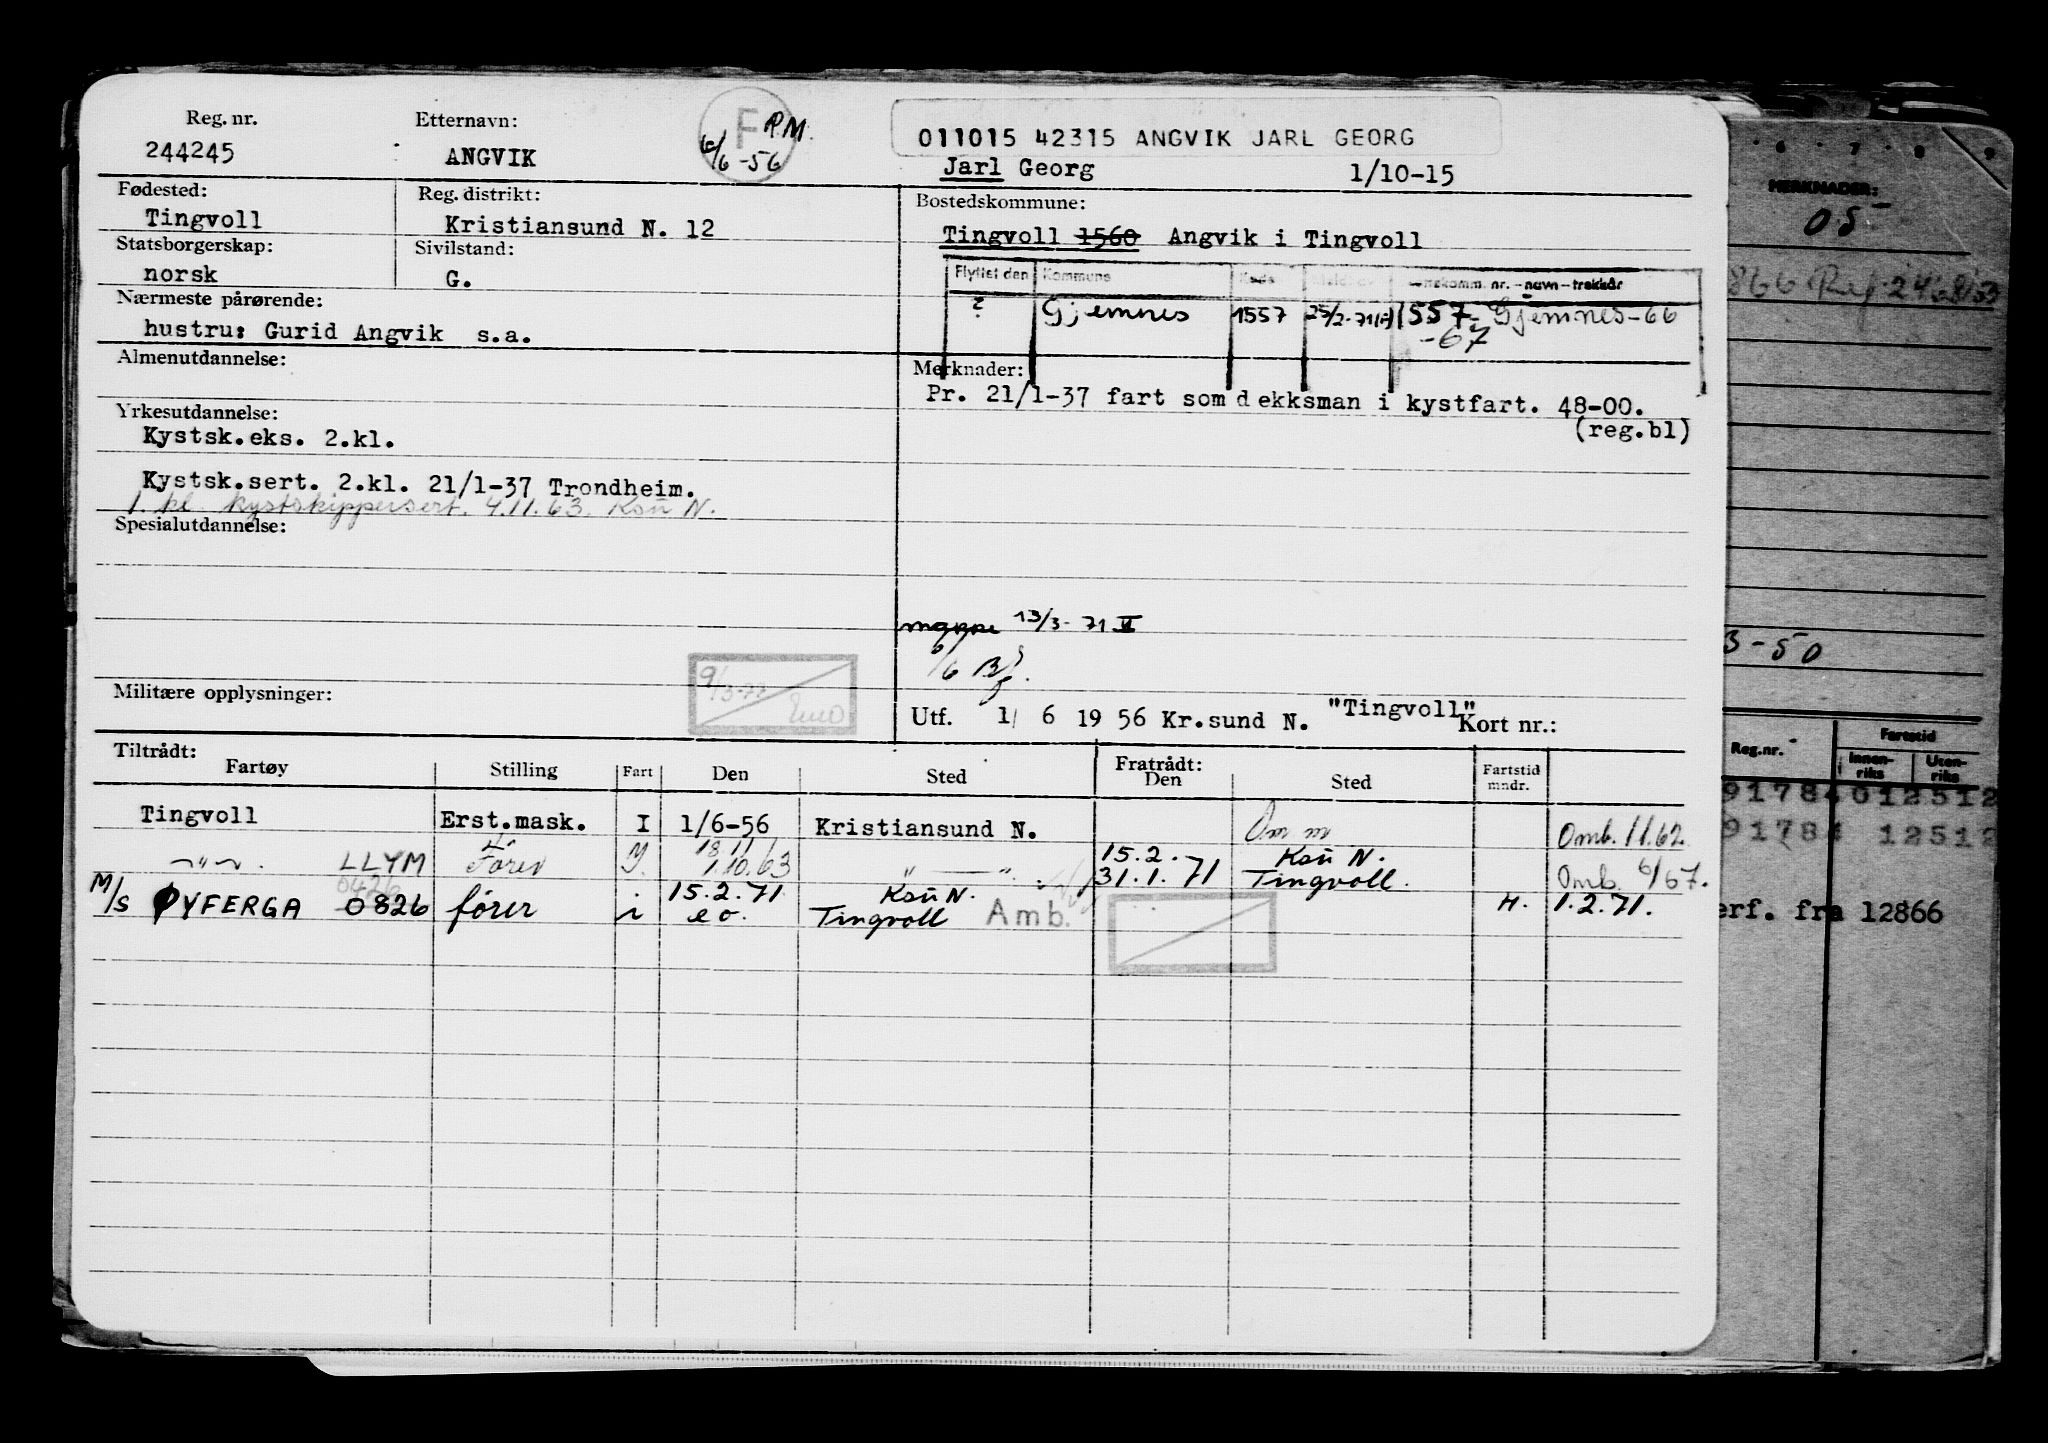 Reg. nr. Etternavn: F P.M. 011015 42315 ANGVIK JARL GEORG
244245 ANGVIK 6/6-56 Jarl Georg 1/10-15
Fødested: Reg. distrikt: Bostedskommune:
Tingvoll Kristiansund N. 12 Tingvoll 1560 Angvik i Tingvoll
Statsborgerskap: Sivilstand:
norsk G.
Flyttet den Kommune nr. - navn - trekkår
? Gjemnes 1557 25/2-71 1557 - Gjemnes - 66
- 67
Nærmeste pårørende:
hustru: Gurid Angvik s.a.
Almenutdannelse:
Merknader:
Pr. 21/1-37 fart som dekksman i kystfart. 48-00.
(reg.bl)
Yrkesutdannelse:
Kystsk.eks. 2.kl.
Kystsk.sert. 2.kl. 21/1-37 Trondheim.
1. kl. kystskippersert. 4.11.63. Ksu N.
Spesialutdannelse:
mappe 13/3-71
Militære opplysninger:
Utf. 1/ 6 19 56 Kr.sund N. "Tingvoll" Kort nr.:
Tiltrådt: Fratrådt:
Fartøy Stilling Fart Den Sted Den Sted Fartstid mndr.
Tingvoll Erst.mask. I 1/6-56 Kristiansund N. Omb. 11.62.
-"- LLYM Fører 1.10.63 -"- 15.2.71 Ksu N. Omb. 6/67.
31.1.71 Tingvoll.
M/S ØYFERGA 0826 0426 fører i 15.2.71 Ksu N. H. 1.2.71.
i e o. Tingvoll Amb.
6 7 8 9
MERKNADER:
05
3-50
Reg.nr. Fartstid
Innenriks Utenriks
91784012512
91784 12512
erf. fra 12866